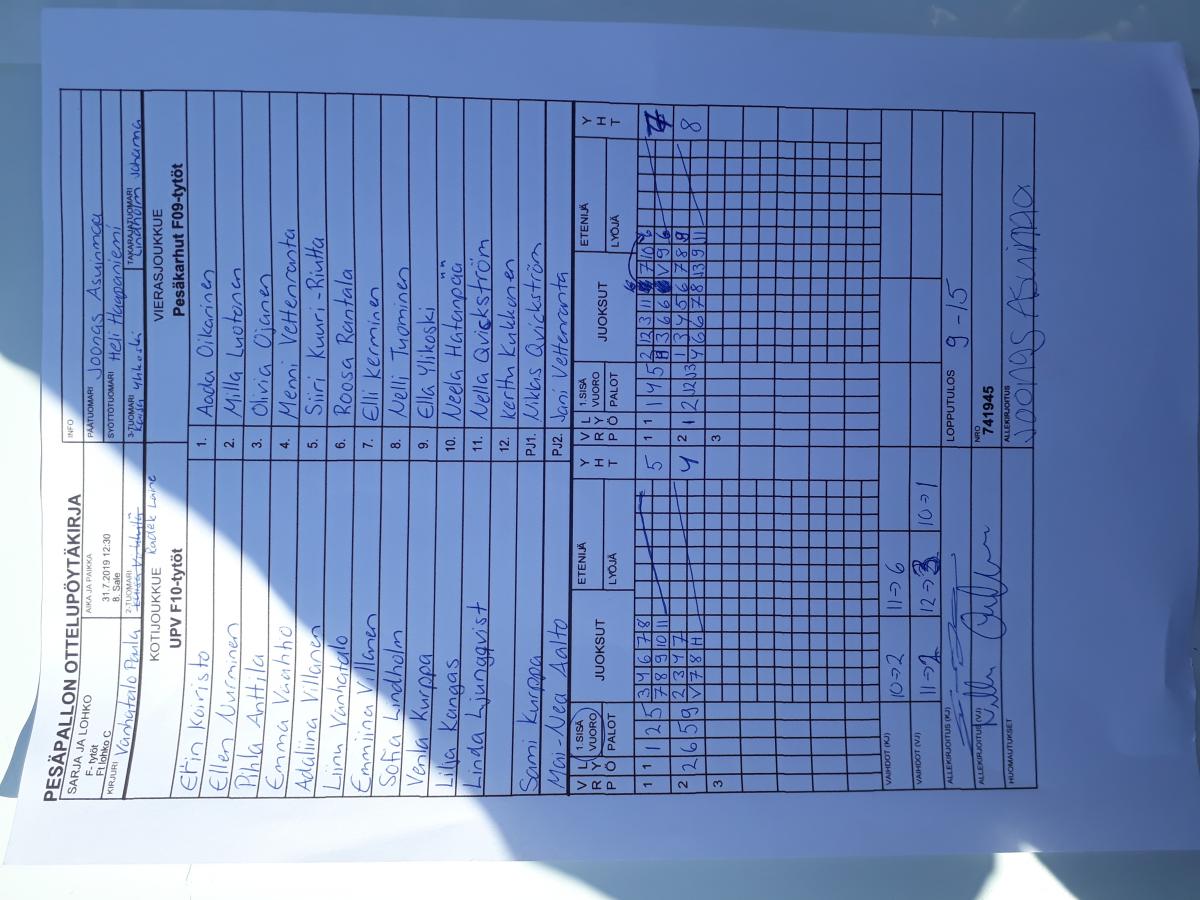 PESÄPALLON OTTELUPÖYTÄKIRJA
SARJA JA LOHKO
F- tytöt
Ft lohko C
AIKA JA PAIKKA
31.7.2019 12:30
8. Sale
INFO
PÄÄTUOMARI Joonas Asuinmaa
SYÖTTÖTUOMARI Heli Haapaniemi
KIRJURI Vanhatalo Paula
2-TUOMARI
Radek Laine
3-TUOMARI Ylikoski
TAKARAJATUOMARI Lindholm Johanna
KOTIJOUKKUE
UPV F10-tytöt
VIERASJOUKKUE
Pesäkarhut F09-tytöt
Elin Koiristo 1. Aada Oikarinen
Ellen Nurminen 2. Milla Luotonen
Pihla Anttila 3. Olivia Ojanen
Emma Vaahtio 4. Menni Vettenranta
Adaliina Villanen 5. Siiri Kuuri-Riutta
Liinu Vanhatalo 6. Roosa Rantala
Emmiina Villanen 7. Elli Kerminen
Sofia Lindholm 8. Nelli Tuominen
Venla Kurppa 9. Ella Ylikoski
Lilja Kangas 10. Neela Hatanpää
Linda Ljungqvist 11. Nella Qvickström
12. Kerttu Kukkonen
Sami Kurppa PJ1. Niklas Qvickström
Mai-Nea Aalto PJ2. Jani Vettenranta
V R P L Y Ö 1.SISÄ VUORO PALOT JUOKSUT ETENIJÄ LYÖJÄ Y H T V R P L Y Ö 1.SISÄ VUORO PALOT JUOKSUT ETENIJÄ LYÖJÄ Y H T
1 1 1 2 5 3 4 6 7 8 5 1 1 1 4 5 7
7 8 9 10 11
2 2 6 5 9 2 3 4 7 4 2 1 2 8
V 7 8 H
3 3
VAIHDOT (KJ) 10→2 11→6
VAIHDOT (VJ) 11→2 12→3 10→1
ALLEKIRJOITUS (KJ) LOPPUTULOS 9-15
ALLEKIRJOITUS (VJ) NRO
741945
HUOMAUTUKSET ALLEKIRJOITUS
Joonas Asuinmaa